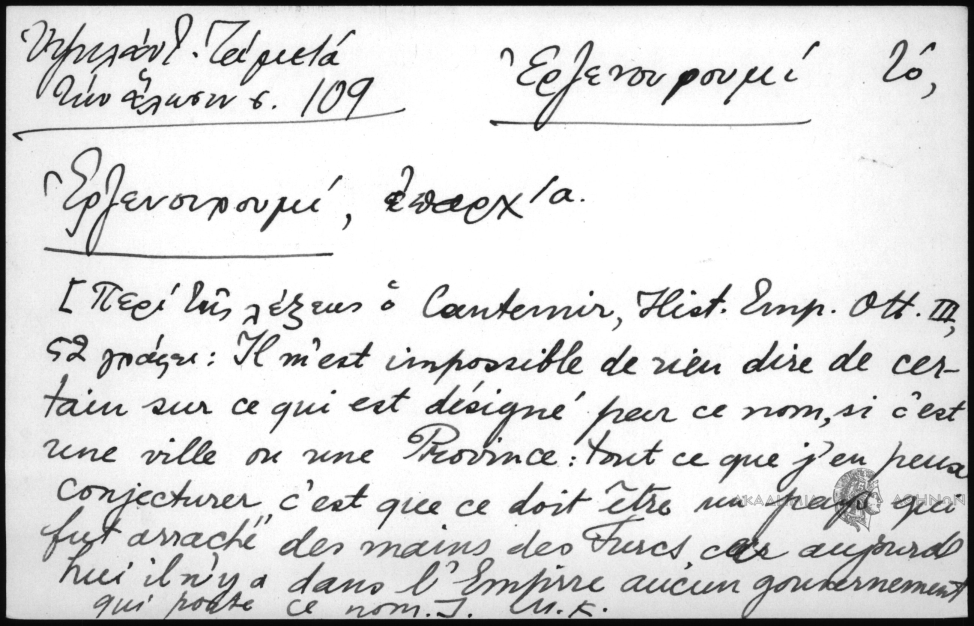 Ὑψηλάντ. Τὰ μετὰ
τὴν ἅλωσιν σ. 109
Ἐρζενουρουμί τό,
Ἐρζενουρουμί, ἐπαρχία.
[Περὶ τῆς λέξεως ὁ Cantemir, Hist. Emp. Ott. III,
52 γράφει: Il m'est impossible de rien dire de cer-
tain sur ce qui est désigné par ce nom, si c'est
une ville ou une Province: tout ce que j'en peux
conjecturer c'est que ce doit être un pays qui
fut arraché des mains des Turcs car aujourd
hui il n'y a dans l'Empirre aucun gouvernement
qui porte ce nom.]. Μ.Κ.
ΑΚΑΔΗΜΙΑ ΑΘΗΝΩΝ